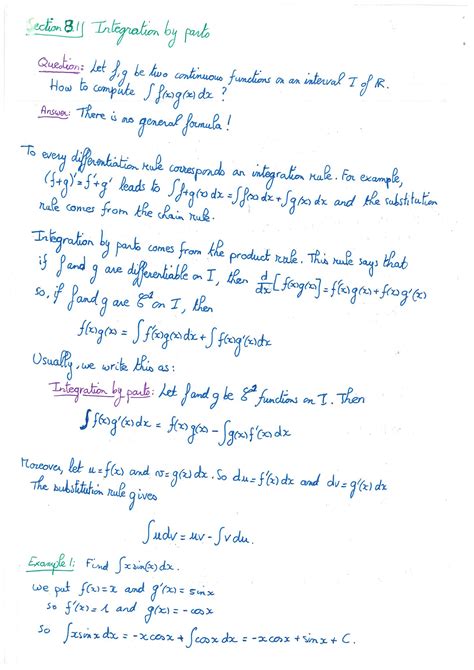 Section 8.1 | Integration by parts
Question: Let f, g be two continuous functions on an interval I of ℝ.
How to compute ∫ f(x)g(x) dx ?
Answer: There is no general formula!
To every differentiation rule corresponds an integration rule. For example,
(f+g)' = f'+g' leads to ∫f+g(x) dx = ∫f(x) dx + ∫g(x) dx and the substitution
rule comes from the chain rule.
Integration by parts comes from the product rule. This rule says that
if f and g are differentiable on I, then d/dx [f(x)g(x)] = f'(x)g(x) + f(x)g'(x)
so, if f and g are C¹ on I, then
f(x)g(x) = ∫f'(x)g(x)dx + ∫f(x)g'(x)dx
Usually, we write this as:
Integration by parts: Let f and g be C¹ functions on I. Then
∫f(x)g'(x)dx = f(x)g(x) - ∫g(x)f'(x)dx
Moreover, let u = f(x) and v = g(x) dx. So du = f'(x) dx and dv = g'(x) dx
The substitution rule gives
∫udv = uv - ∫vdu.
Example 1: Find ∫x sin(x) dx.
we put f(x) = x and g'(x) = sin x
so f'(x) = 1 and g(x) = -cos x
so ∫x sin x dx = -x cos x + ∫cos x dx = -x cos x + sin x + C.